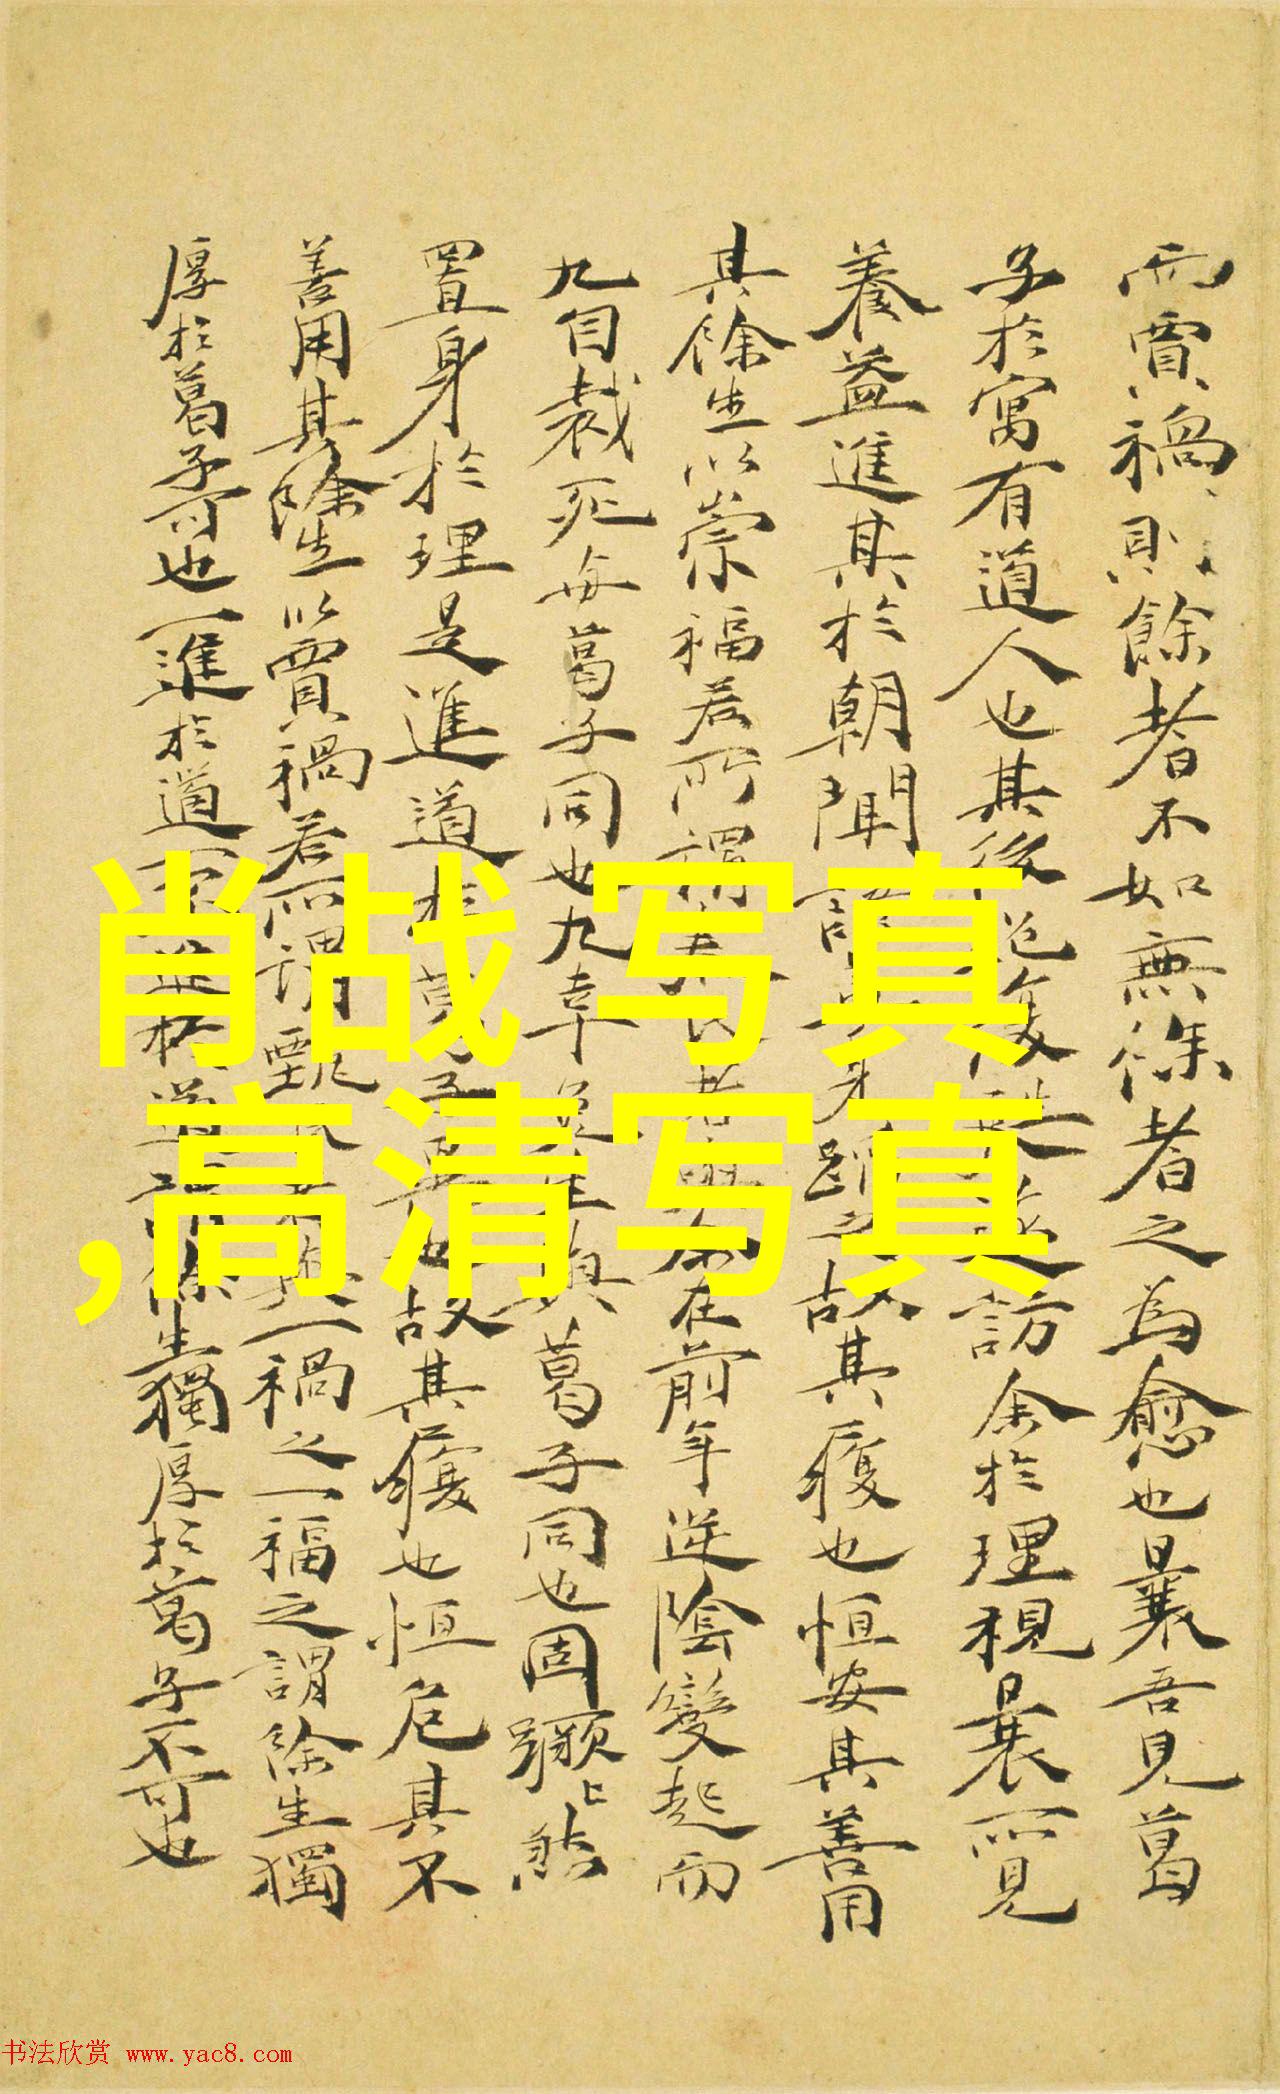 而賈禍則餘者不如無餘者之為愈也曩吾見葛
子於寓有道人也其後復遂訪余於理視曩所見
養益進其於朝聞之故其履也恒安其善用
其餘生以崇福若所謂在前年逆陰變起而
九自裁死與葛子同也九幸與葛子同也固
置身於理是進道於故其履也恒危其不
善用其餘生以賈禍若所謂甄一禍之一福之謂餘生獨
厚於葛子可也一進於道一不進於道謂餘生獨厚於葛子不可也
肖战 写真
,高清写真
书法欣赏 www.yac8.com